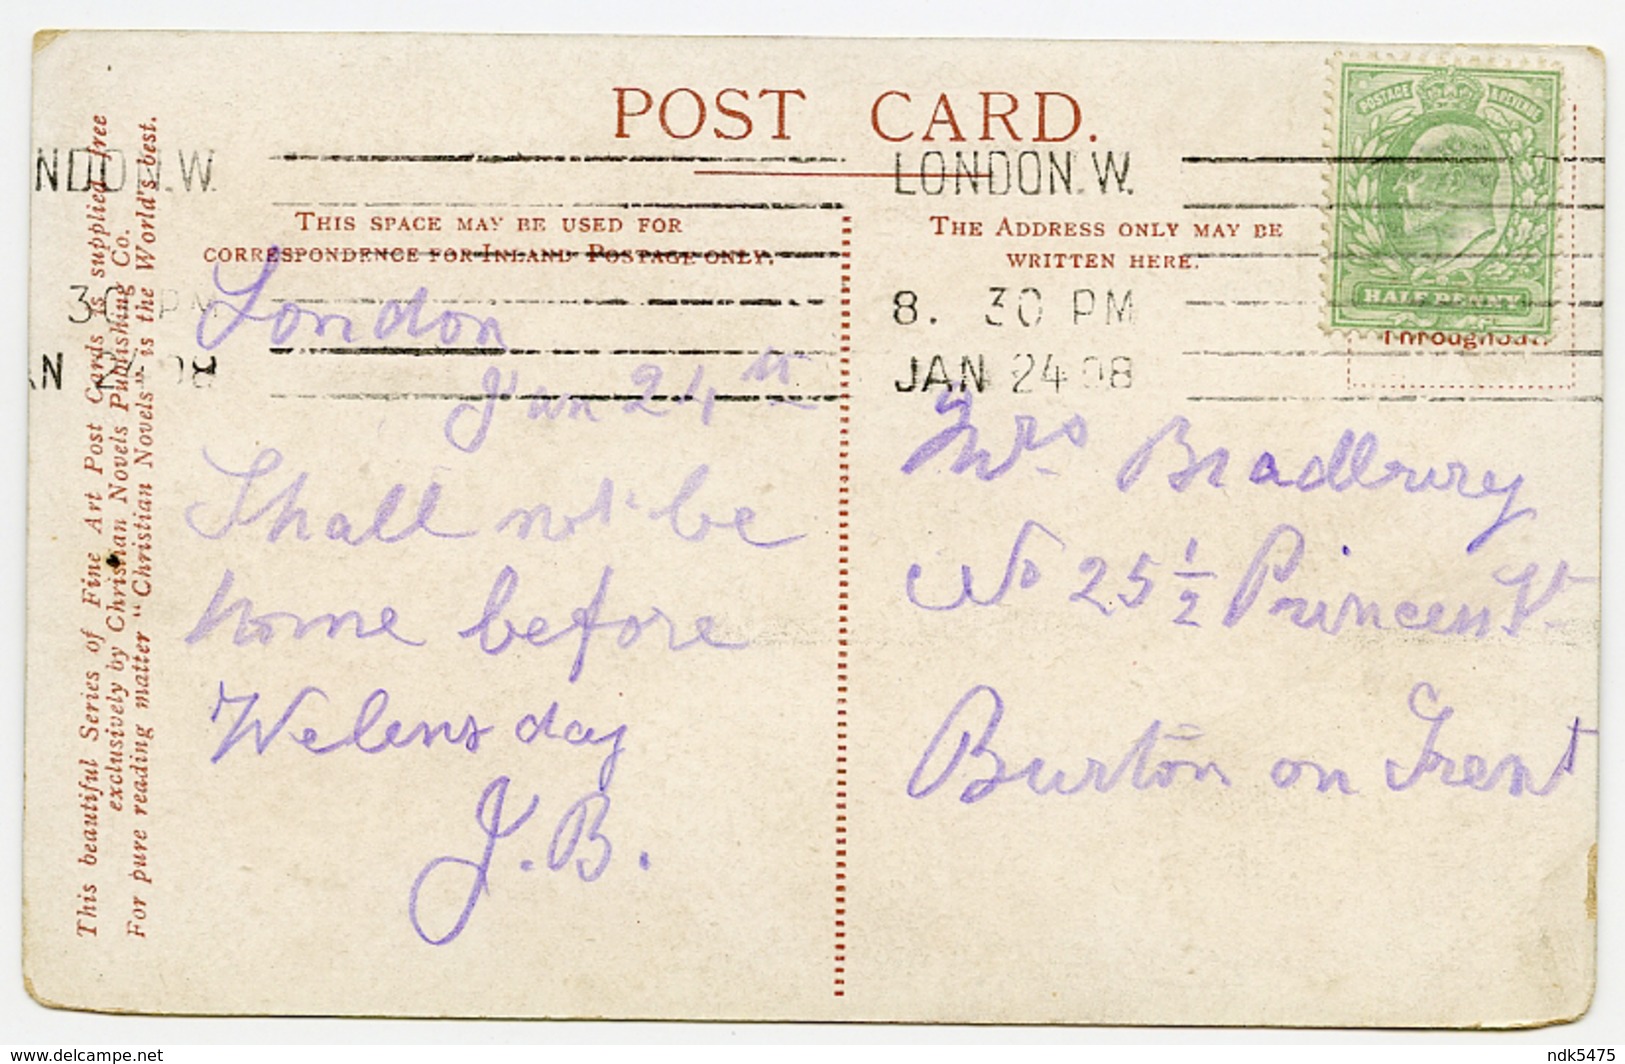 POST CARD.
LONDON.W.
8. 30 PM
JAN 24 08
NDON.W.
30 PM
AN 24 08
POSTAGE & REVENUE
HALFPENNY
Throughout.
THIS SPACE MAY BE USED FOR
CORRESPONDENCE FOR INLAND POSTAGE ONLY.
THE ADDRESS ONLY MAY BE
WRITTEN HERE.
This beautiful Series of Fine Art Post Cards is supplied free
exclusively by Christian Novels Publishing Co.
For pure reading matter "Christian Novels" is the World's best.
London
Jan 24th
Shall not be
home before
Welensday
J. B.
Mrs Bradbury
No 25 1/2 Princen St
Burton on Trent
ndk5475
www.delcampe.net